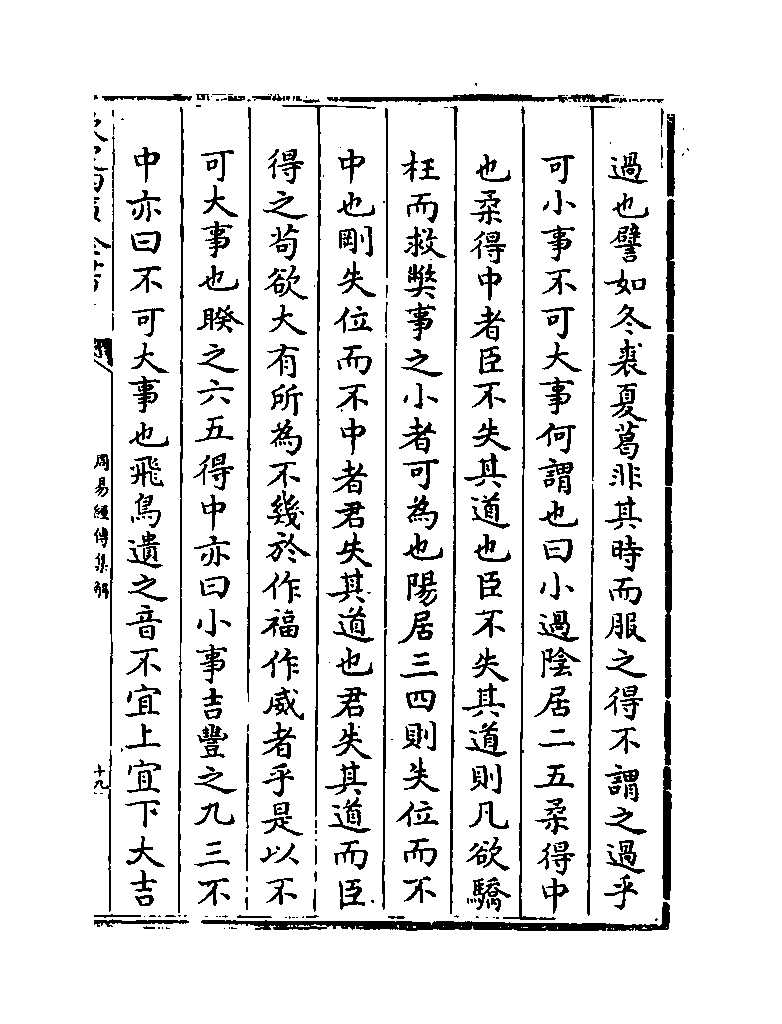 過也譬如冬裘夏葛非其時而服之得不謂之過乎
可小事不可大事何謂也曰小過陰居二五柔得中
也柔得中者臣不失其道也臣不失其道則凡欲驕
枉而救獘事之小者可為也陽居三四則失位而不
中也剛失位而不中者君失其道也君失其道而臣
得之茍欲大有所為不幾於作福作威者乎是以不
可大事也睽之六五得中亦曰小事吉豐之九三不
中亦曰不可大事也飛鳥遺之音不宜上宜下大吉
周易經傳集解
十九